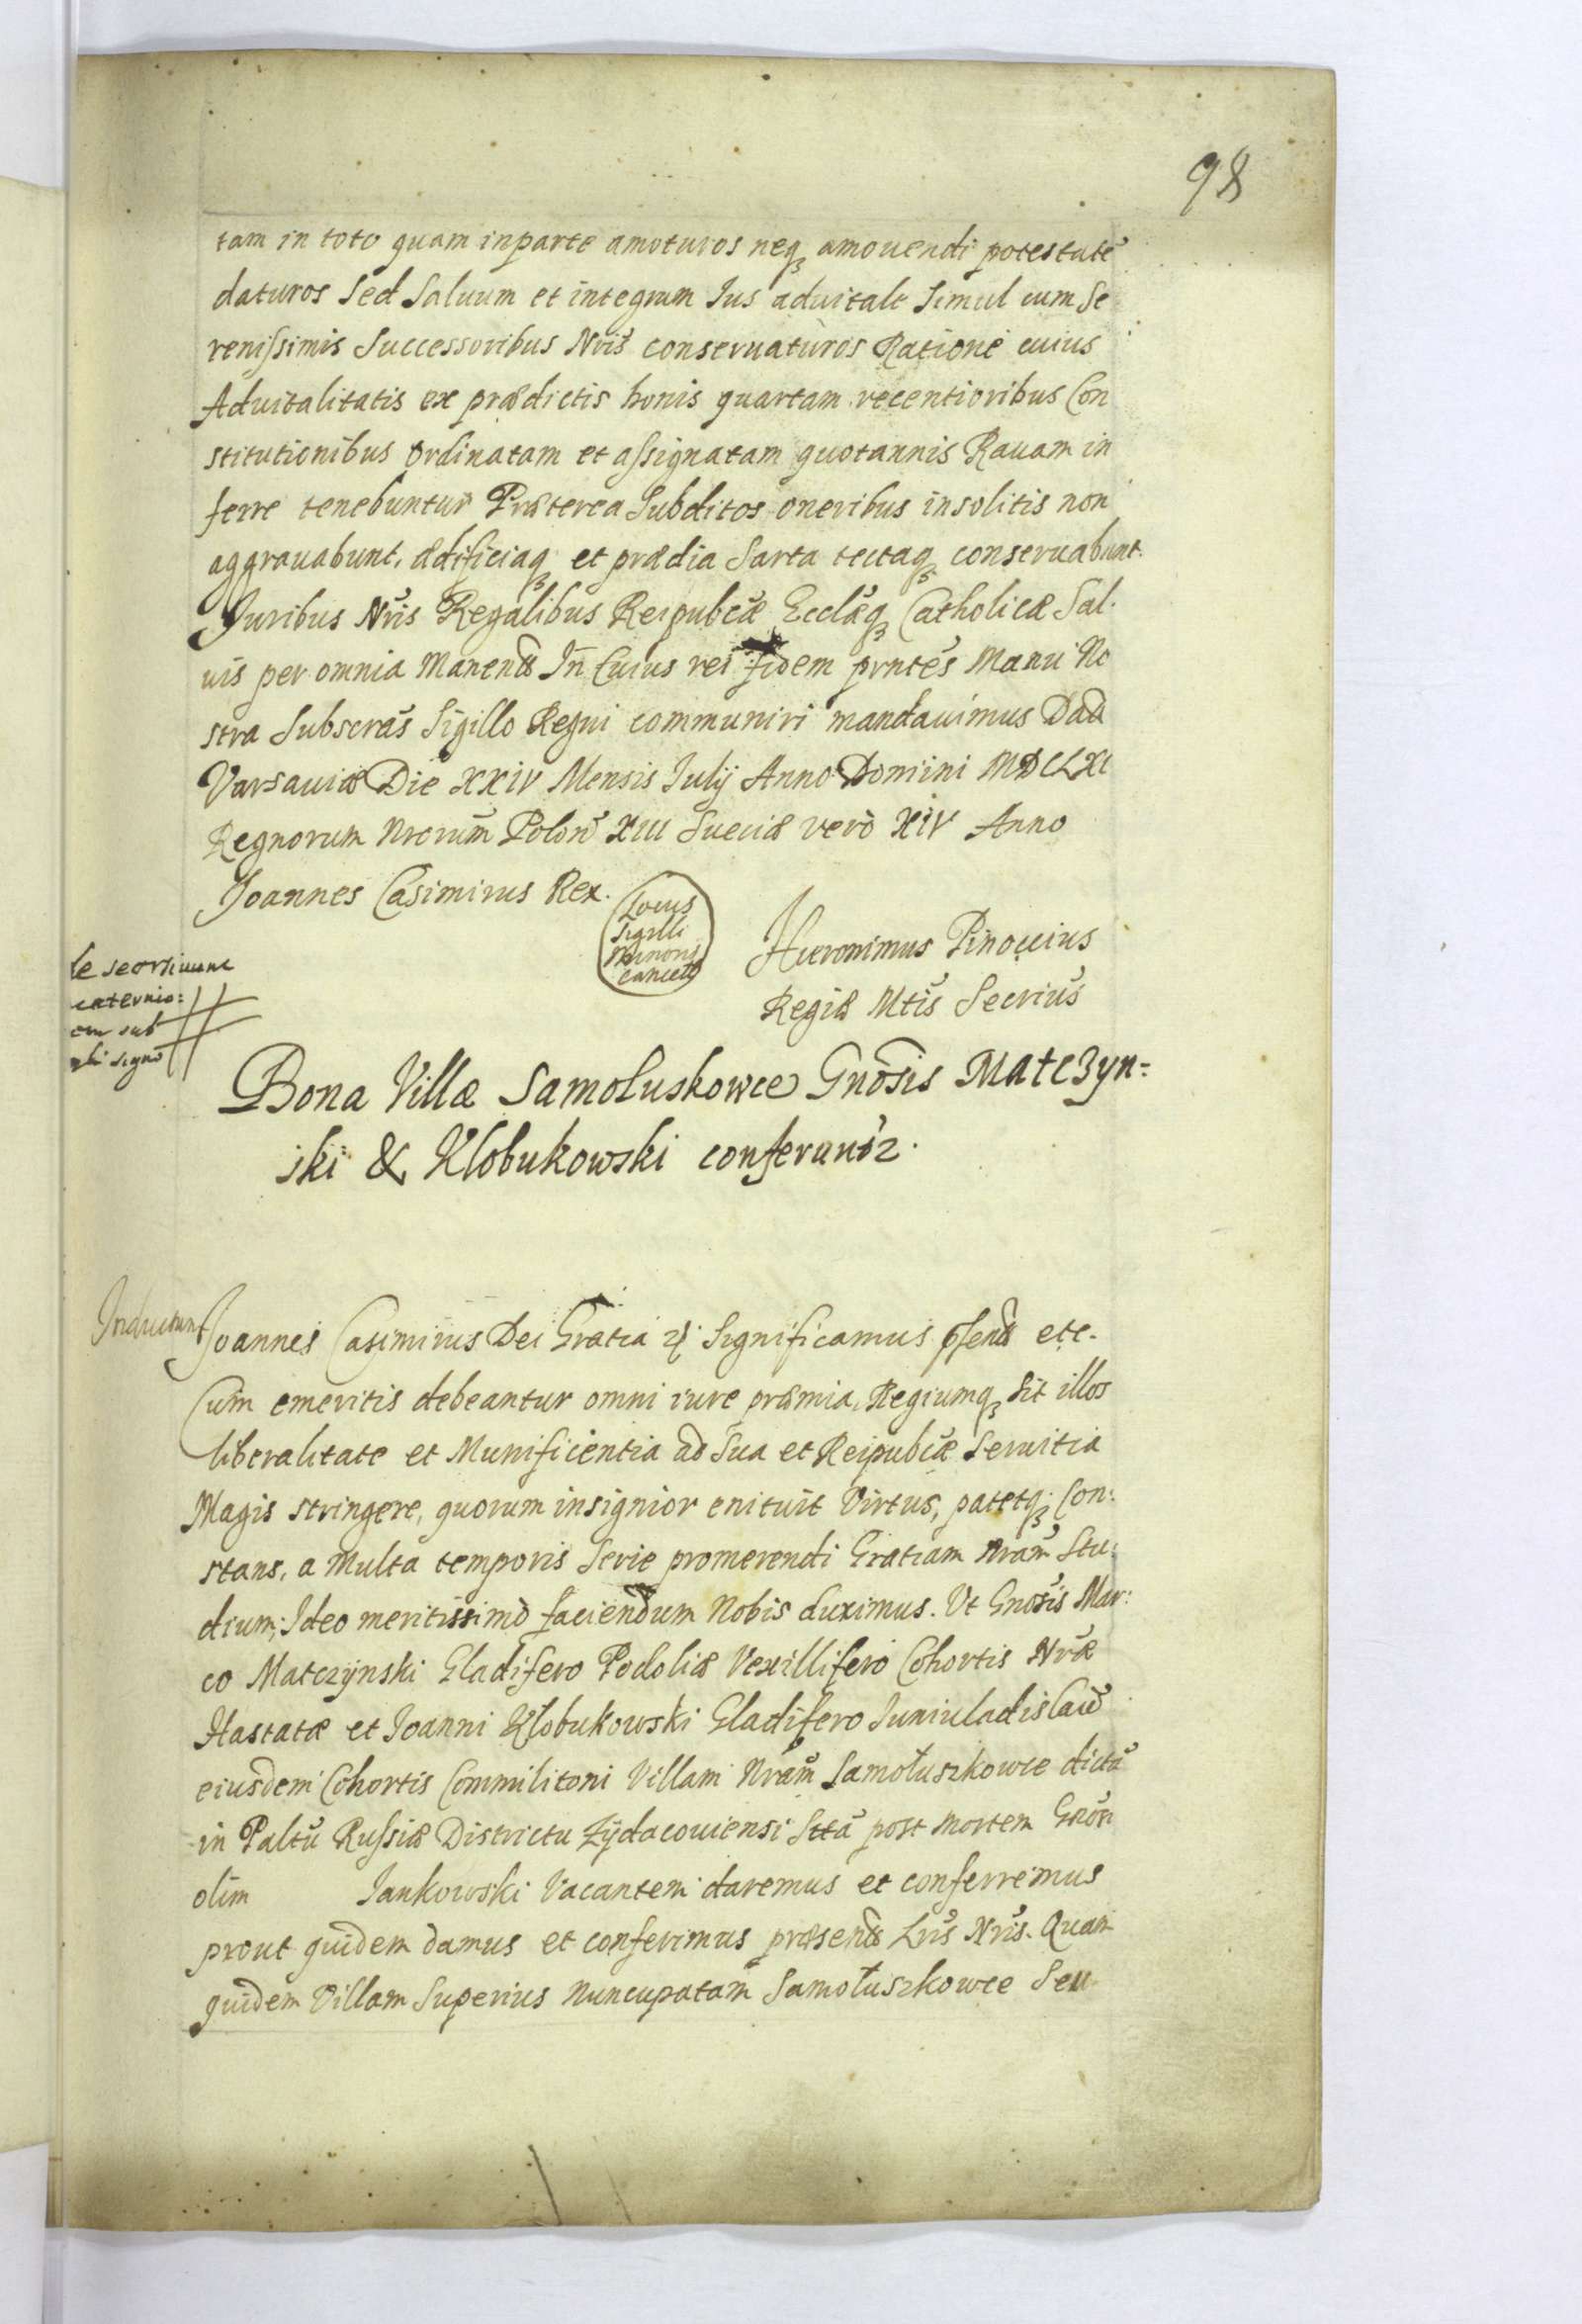 98
tam in toto quam in parte amoturos neqꝫ amouendi potestatē
daturos Sed Saluum et integrum Ius aduitale Simul cum Se
renissimis Successoribus Nris conseruaturos Ratione cuius
Aduitalitatis ex prædictis bonis quartam recentioribus Con
stitutionibus ordinatam et assignatam quotannis Rauam in
ferre tenebuntur Præterea Subditos oneribus insolitis non
aggrauabunt, ædificiaqꝫ et prædia Sarta tectaqꝫ conseruabunt.
Juribus Nris Regalibus Reipubcæ Ecclæqꝫ Catholicæ Sal.
uis per omnia Manend In Cuius rei fidem prntes Manu No
stra Subscras Sigillo Regni communiri mandauimus Dad
Varsauiæ Die XXIV Mensis Julij Anno Domini MDCLXI
Regnorum Nrorum Polon XIII Sueciæ vero XIV Anno
Joannes Casimirus Rex.
Locus
Sigilli
Minoris
Hieronimus Pinoccius
Regiæ Mtis Secrius
Bona Villæ Samoluskowce Gnosis Matczyn=
ski & Klobukowski conferuntr.
Joannes Casimirus Dei Gratia Significamus psend etc.
Cum emeritis debeantur omni iure præmia, Regiumqꝫ Sit illos
liberalitate et Munificentia ad Sua et Reipubcæ Seruitia
Magis stringere, quorum insignior enituit Virtus, patetqꝫ Con:
stans, a Multa temporis Serie promerendi Gratiam Nram Stu:
dium, Ideo meritissimo faciendum Nobis duximus. Vt Gnosis Mar:
co Matczynski Gladifero Podoliæ Vexillifero Cohortis Nræ
Hastatæ et Joanni Klobukowski Gladifero Juniuladislau
eiusdem Cohortis Commilitoni Villam Nram Samołuszkowce dictā
in Paltu Russiæ Districtu Zydacouiensi Sttā post mortem Gnosi
olim Jankowski Vacantem daremus et conferremus
prout quidem damus et conferimus præsend Lris Nris. Quam
quidem Villam Superius Nuncupatam Samołuszkowce Seu